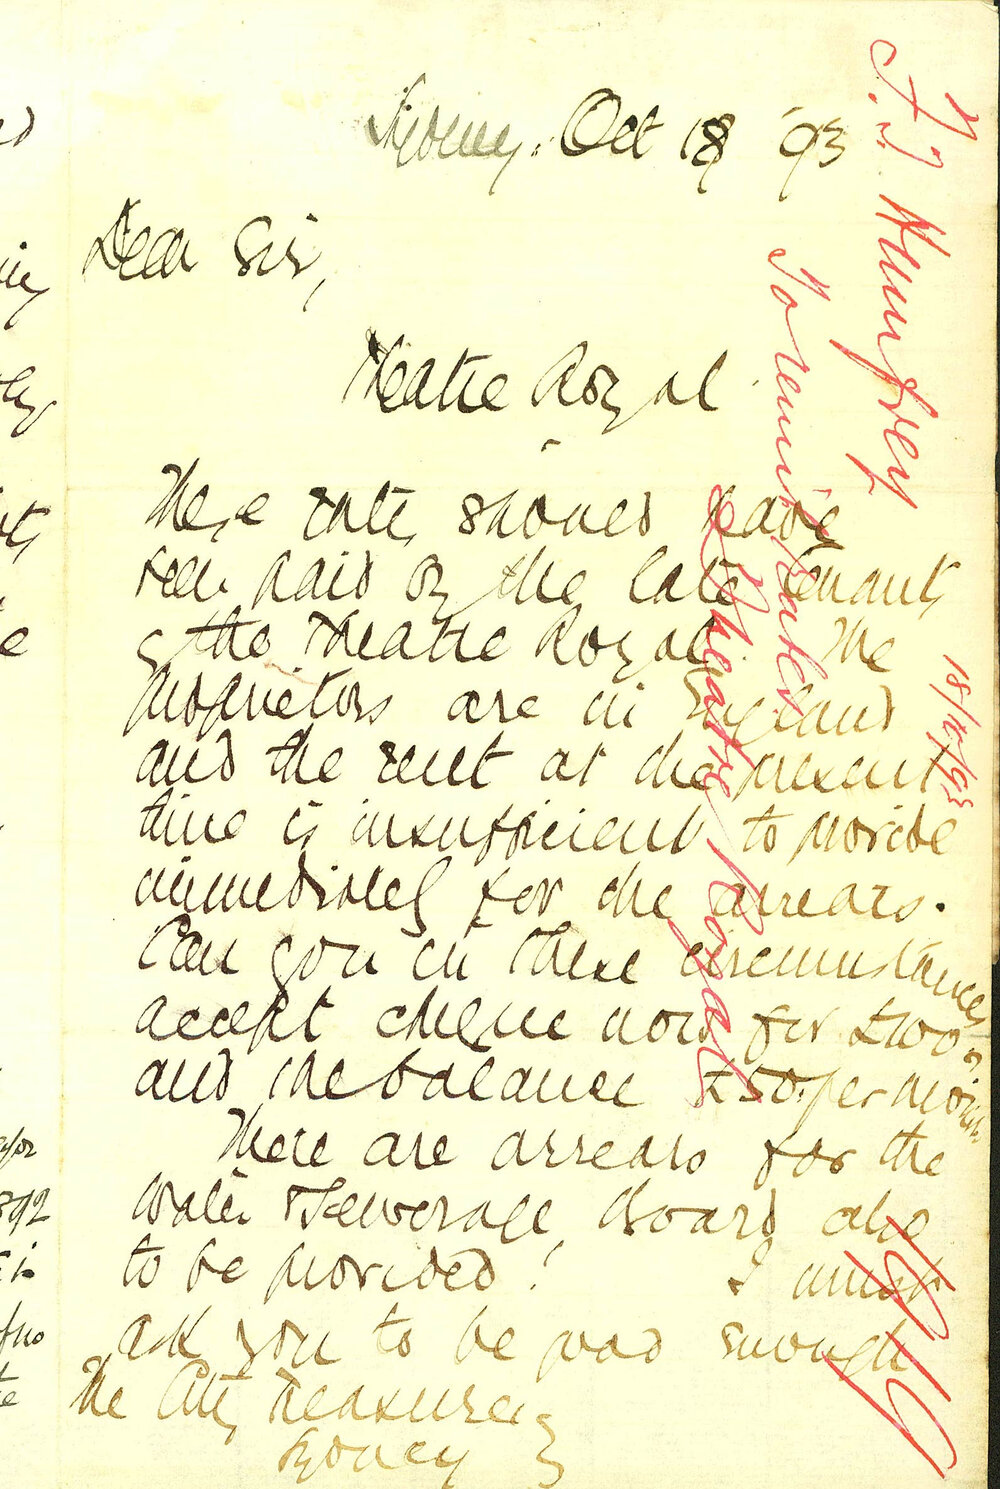 Sydney. Oct 18 '93
Dear Sir,
Theatre Royal
These rates should have
been paid by the late tenants
of the Theatre Royal. The
proprietors are in England
and the rent at the present
time is insufficient to provide
immediately for the arrears.
Can you in these circumstances
accept cheque now for £200
and the balance £50 per month.
There are arrears for the
Water & Sewerage Board also
to be provided! I must
ask you to be good enough
The City Treasurer
Sydney
F. J. Humfrey
18/10/93
To remit rates
Theatre Royal
892